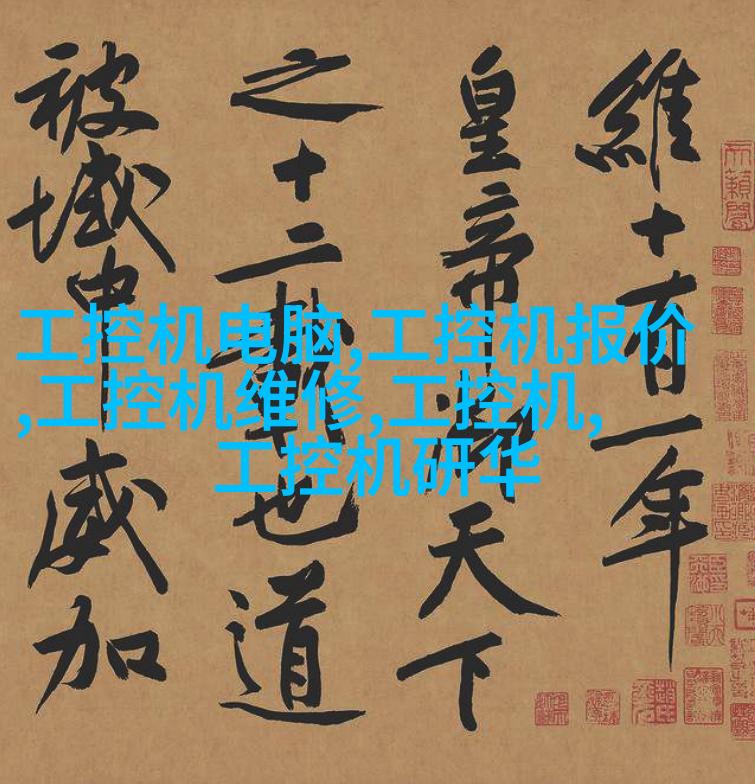 維十有一年
皇帝御天下
之十二載也道
被域中威加
工控机电脑,工控机报价
,工控机维修,工控机,
工控机研华